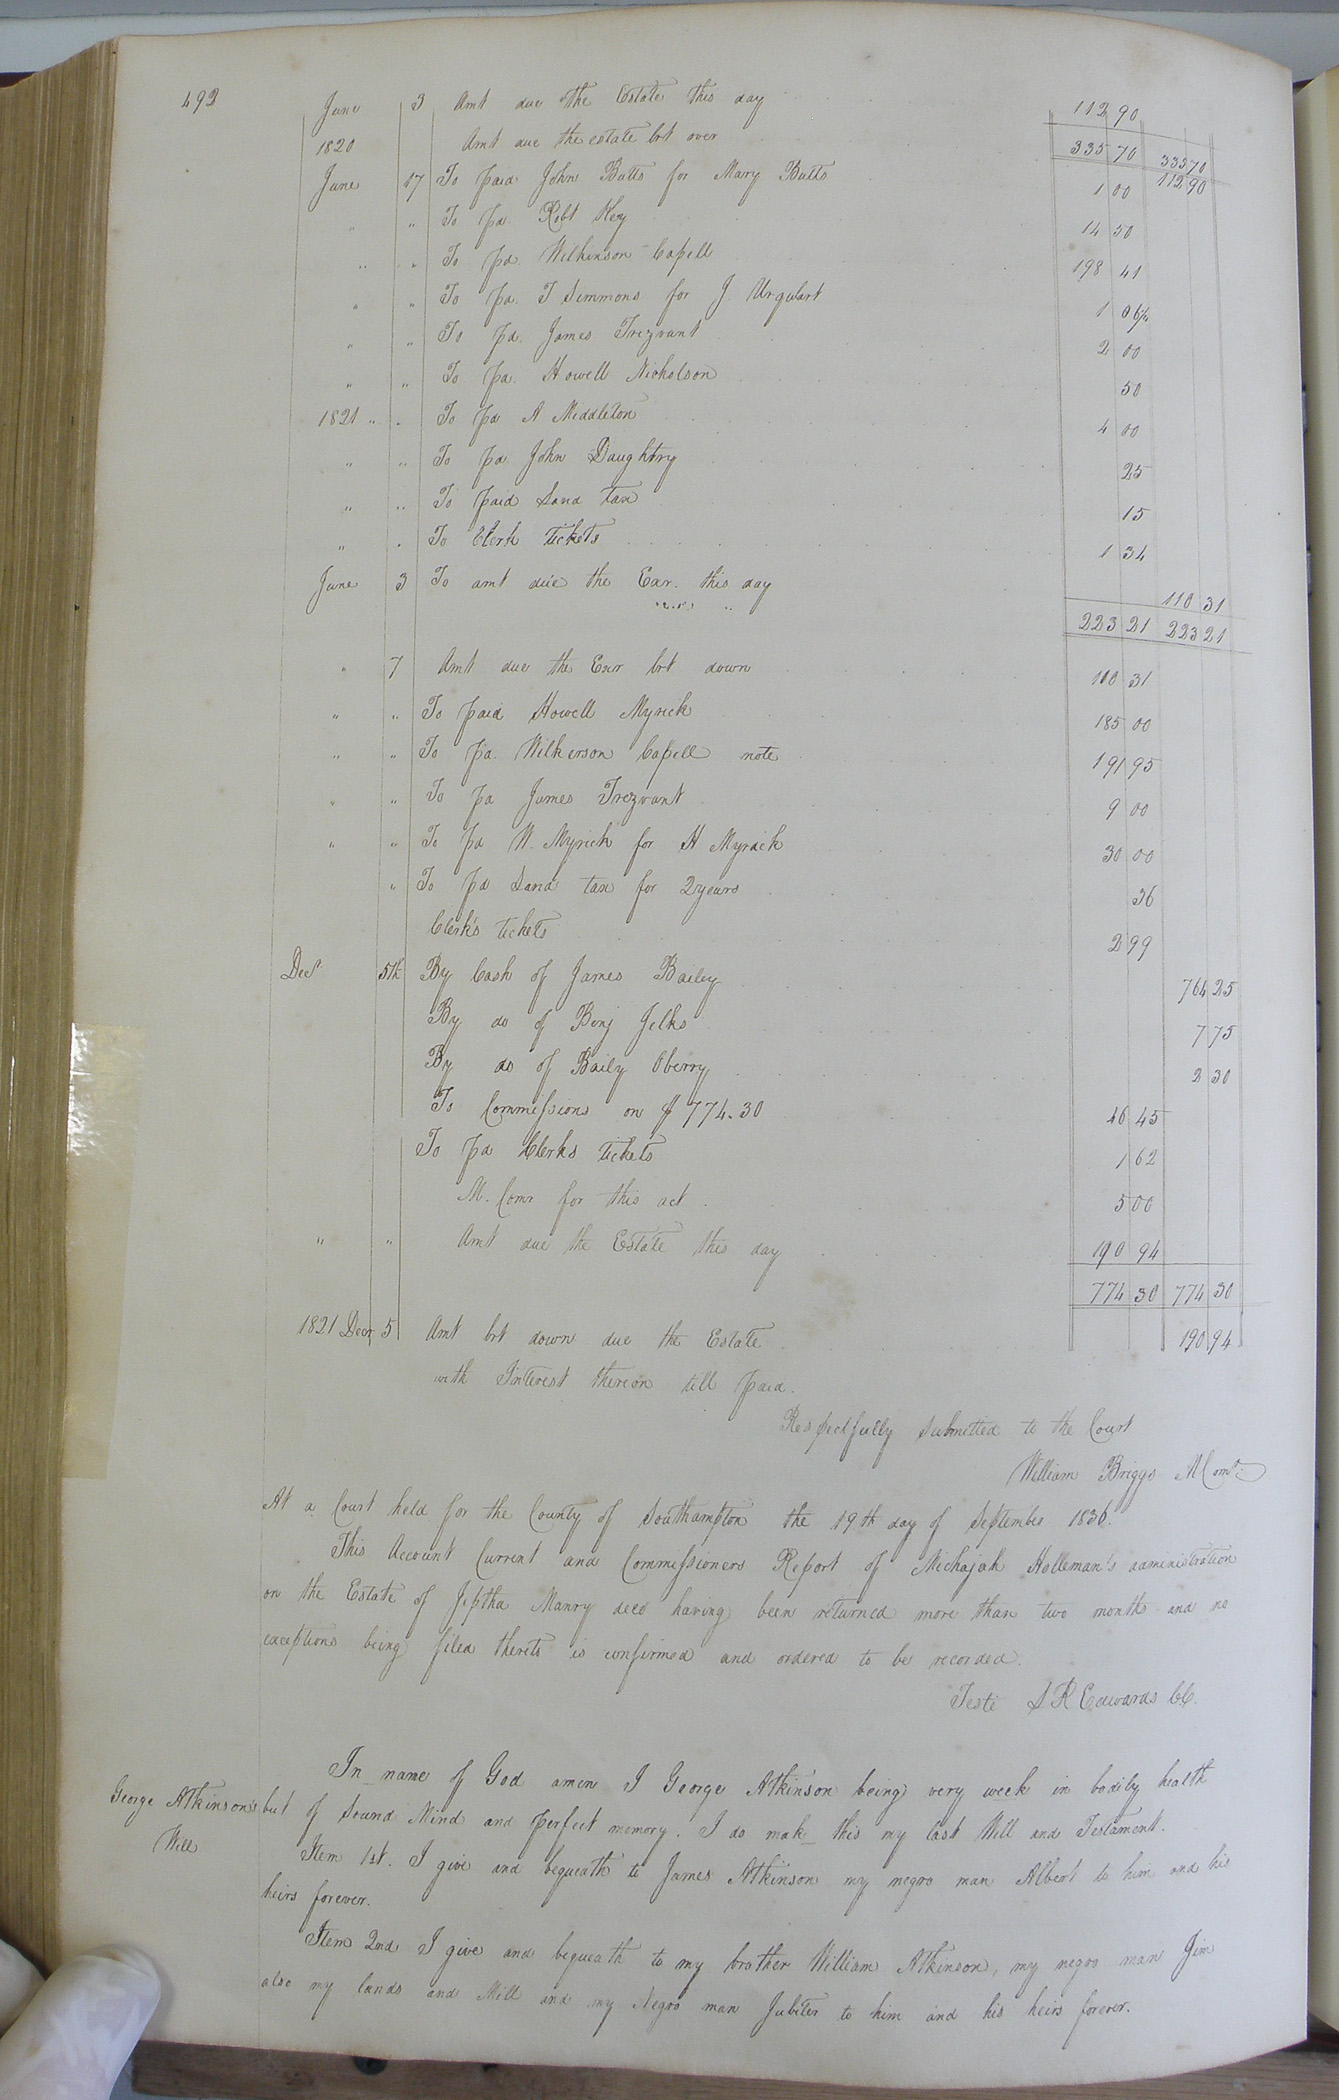 492
June 3 Amt due the Estate this day 112 90
1820 Amt due the estate brt over 335 70 335 70
June 17 To paid John Butts for Mary Butts 1 00 112 90
" " To pd. Robt Key 14 50
" " To pd. Wilkinson Capell 198 41
" " To pd. T Simmons for J. Urquhart 1 06¼
" " To pd. James Trezvant 2 00
" " To pd. Howell Nicholson 50
1821 " " To pd A Middleton 4 00
" " To pd John Daughtry 25
" " To paid Land tax 15
" " To Clerk tickets 1 34
June 3 To amt due the Exr. this day 110 31
223 21 223 21
" 7 Amt due the Exr brt down 110 31
" " To paid Howell Myrick 185 00
" " To pd. Wilkerson Capell note 191 95
" " To pd James Trezvant 9 00
" " To pd W. Myrick for H Myrick 30 00
" To pd Land tax for 2 years 36
Clerk's tickets 2 99
Decr 5th By Cash of James Bailey 764 25
By do of Benj Jelks 7 75
By do of Baily Oberry 2 30
To Commissions on $774.30 46 45
To pd Clerks tickets 1 62
M. Comr for this act 5 00
" " Amt due the Estate this day 190 94
774 30 774 30
1821 Decr 5 Amt brt down due the Estate 190 94
with Interest thereon till paid.
Respectfully submitted to the Court
William Briggs M Comr.
At a Court held for the County of Southampton the 19th day of September 1836.
This Account Current and Commissioners Report of Michajah Holleman's administration
on the Estate of Jeptha Manry decd having been returned more than two months and no
exceptions being filed thereto is confirmed and ordered to be recorded.
Teste L R Edwards CC.
George Atkinson's
Will
In name of God amen I George Atkinson being very week in bodily health
but of Sound Mind and perfect memory. I do mak_ this my last Will and Testament.
Item 1st. I give and bequeath to James Atkinson my negro man Albert to him and his
heirs forever.
Item 2nd I give and bequeath to my brother William Atkinson, my negro man Jim
also my lands and Mill and my Negro man Jubiter to him and his heirs forever.